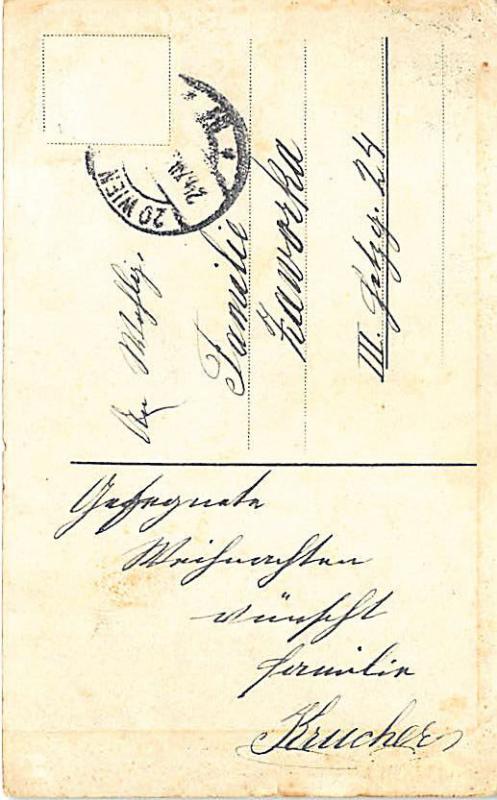 20 WIEN
An
Familie
Zaworka
III. 24
Gesegnete
Weihnachten
wünscht
Familie
Krucher